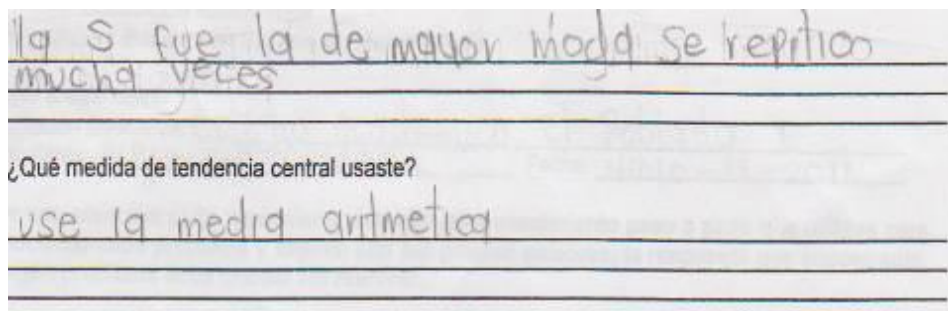 lla S fue la de mayor moda se repitioo
mucha veces
¿Qué medida de tendencia central usaste?
use la media aritmetica